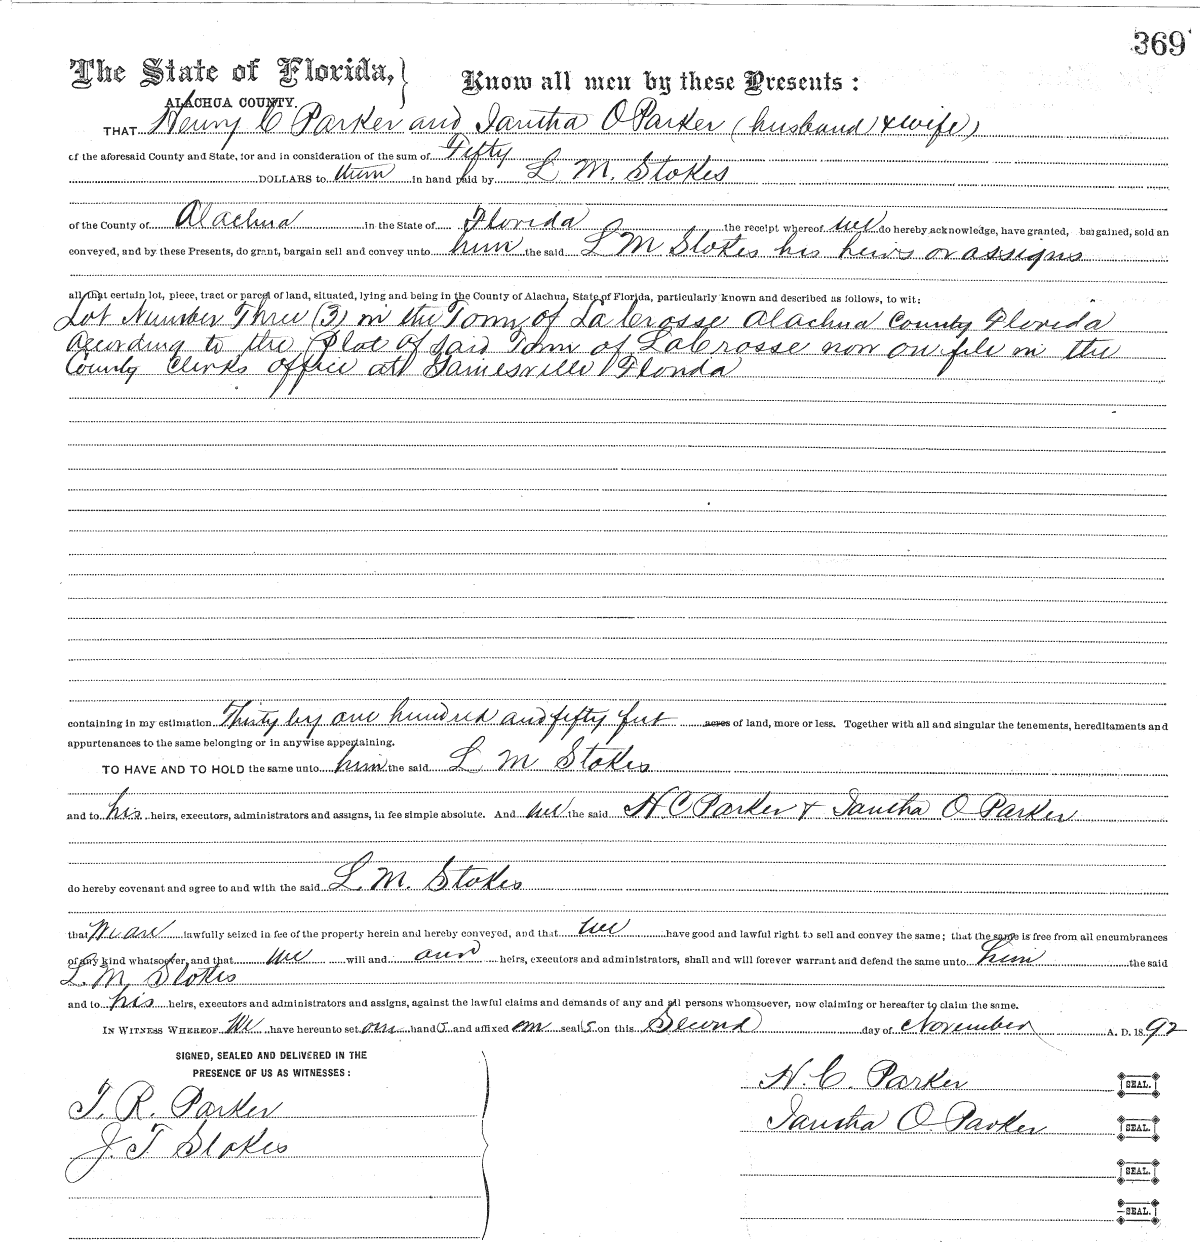 369
The State of Florida, Know all men by these Presents:
ALACHUA COUNTY.
THAT Henry C Parker and Iantha O Parker (husband & wife)
of the aforesaid County and State, for and in consideration of the sum of Fifty
DOLLARS to them in hand paid by L M. Stokes
of the County of Alachua in the State of Florida the receipt whereof we do hereby acknowledge, have granted, bargained, sold an
conveyed, and by these Presents, do grant, bargain sell and convey unto him the said L M Stokes his heirs or assigns
all that certain lot, piece, tract or parcel of land, situated, lying and being in the County of Alachua, State of Florida, particularly known and described as follows, to wit:
Lot Number Three (3) in the Town of La Crosse Alachua County Florida
According to the Plat of said Town of LaCrosse now on file in the
County Clerks office at Gainesville Florida
containing in my estimation Thirty by one hundred and fifty feet acres of land, more or less. Together with all and singular the tenements, hereditaments and
appurtenances to the same belonging or in anywise appertaining.
TO HAVE AND TO HOLD the same unto him the said L M Stokes
and to his heirs, executors, administrators and assigns, in fee simple absolute. And we the said H C Parker & Iantha O Parker
do hereby covenant and agree to and with the said L. M. Stokes
that We are lawfully seized in fee of the property herein and hereby conveyed, and that we have good and lawful right to sell and convey the same; that the same is free from all encumbrances
of any kind whatsoever, and that we will and our heirs, executors and administrators, shall and will forever warrant and defend the same unto him the said
L. M. Stokes
and to his heirs, executors and administrators and assigns, against the lawful claims and demands of any and all persons whomsoever, now claiming or hereafter to claim the same.
IN WITNESS WHEREOF We have hereunto set our hands and affixed our seals on this Second day of November A. D. 1892
SIGNED, SEALED AND DELIVERED IN THE
PRESENCE OF US AS WITNESSES:
H. C. Parker SEAL.
T. R. Parker
Iantha O Parker SEAL.
J. T Stokes
SEAL.
SEAL.